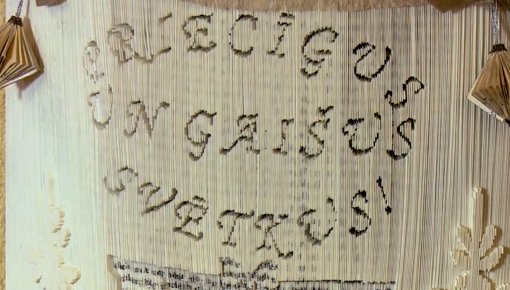 PRIECĪGUS
UN GAIŠUS
SVĒTKUS!